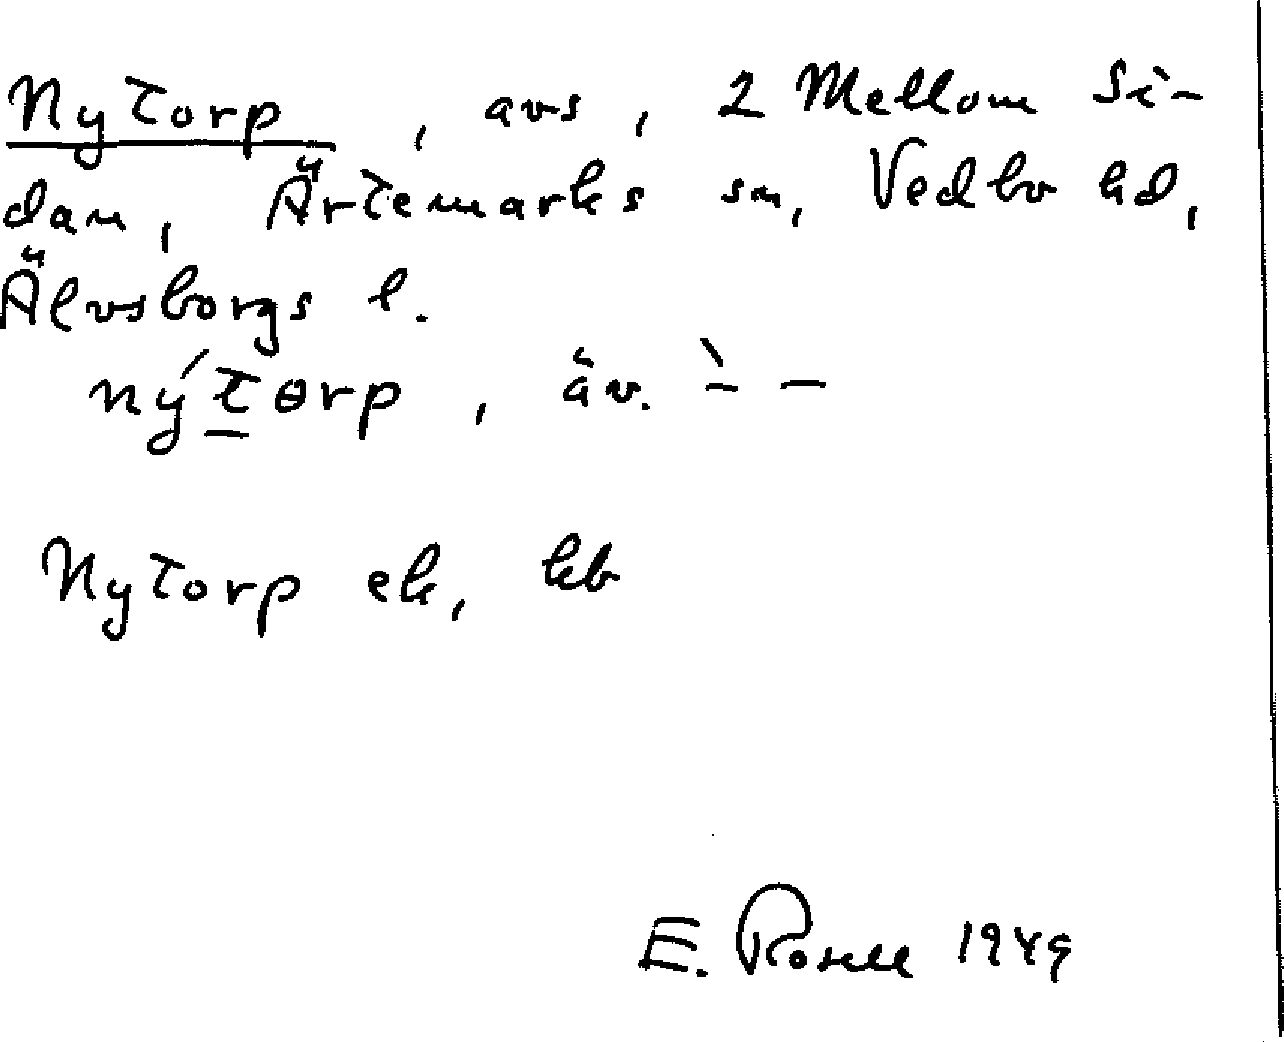 Nytorp, avs, 2 Mellom Si-
dan, Ärtemarks sn, Vedbo hd,
Älvsborgs l.
ný́tɵrp, äv. `– –
Nytorp ek, kb
E. Rosell 1949